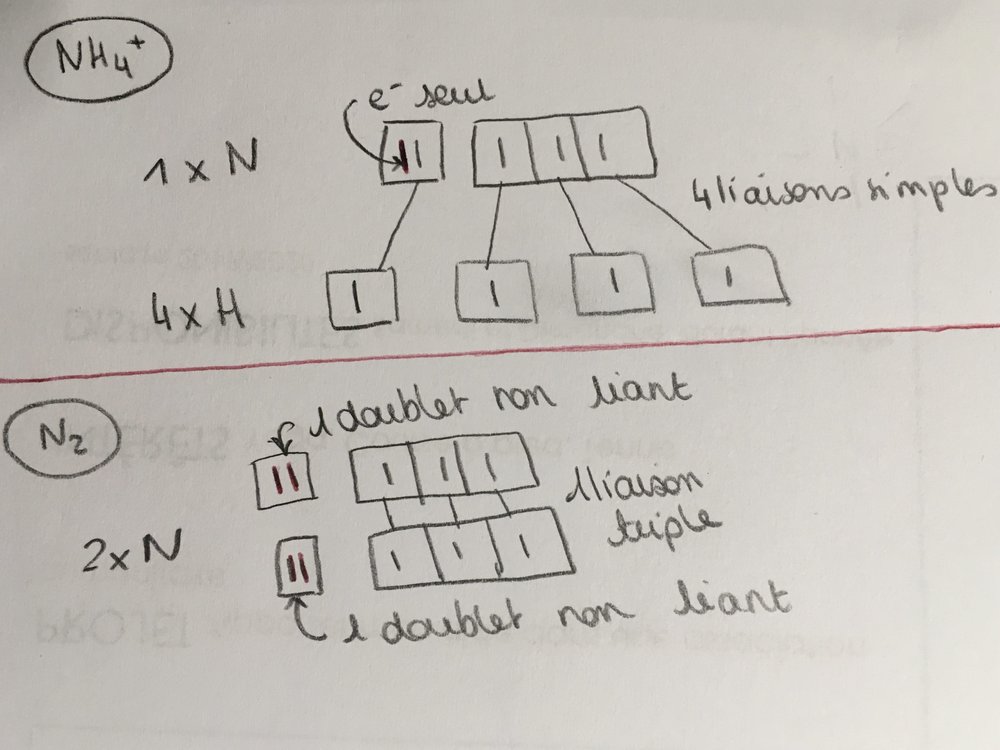 NH₄⁺
e⁻ seul
1 x N
4 liaisons simples
4 x H
N₂
1 doublet non liant
1 liaison
triple
2 x N
1 doublet non liant